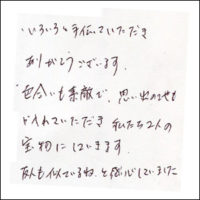 いろいろと手伝っていただき
ありがとうございます。
色合いも素敵で、思い出のせも
ドへれていただき 私たち2人の
宝物にしています。
友人も似ているね、と感心していました